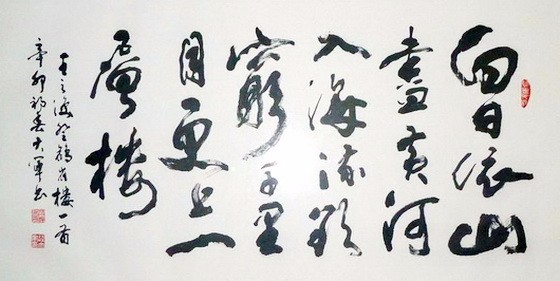 白日依山
盡黄河
入海流欲
窮千里
目更上一
層樓
王之渙登鸛雀樓一首
辛卯初春大軍书